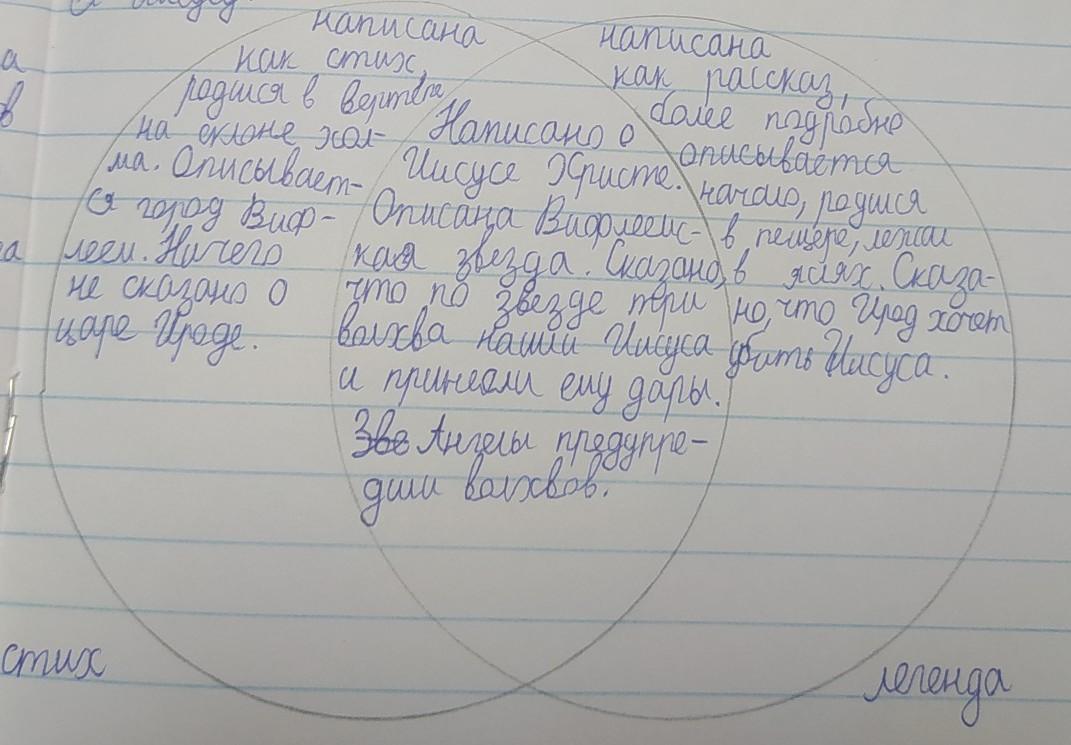 написана
как стих,
родился в вертепе
на склоне хол-
ма. Описывает-
ся город Виф-
леем. Ничего
не сказано о
царе Ироде.
Написано о
Иисусе Христе.
Описана Вифлеемс-
кая звезда. Сказано,
что по звезде три
волхва нашли Иисуса
и принесли ему дары.
Зве Ангелы предупре-
дили волхвов.
написана
как рассказ,
более подробно
описывается
начало, родился
в пещере, лежал
в яслях. Сказа-
но, что Ирод хочет
убить Иисуса.
стих
легенда
а
в
а